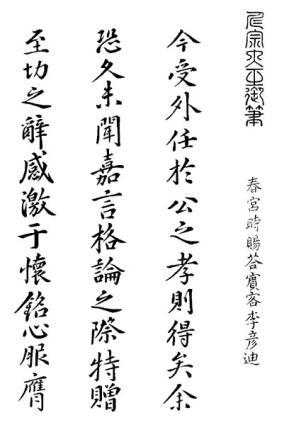 仁宗大王御筆
春宮時賜答賓客李彦迪
今受外任於公之孝則得矣余
恐久未聞嘉言格論之際特贈
至切之辭感激于懷銘心服膺